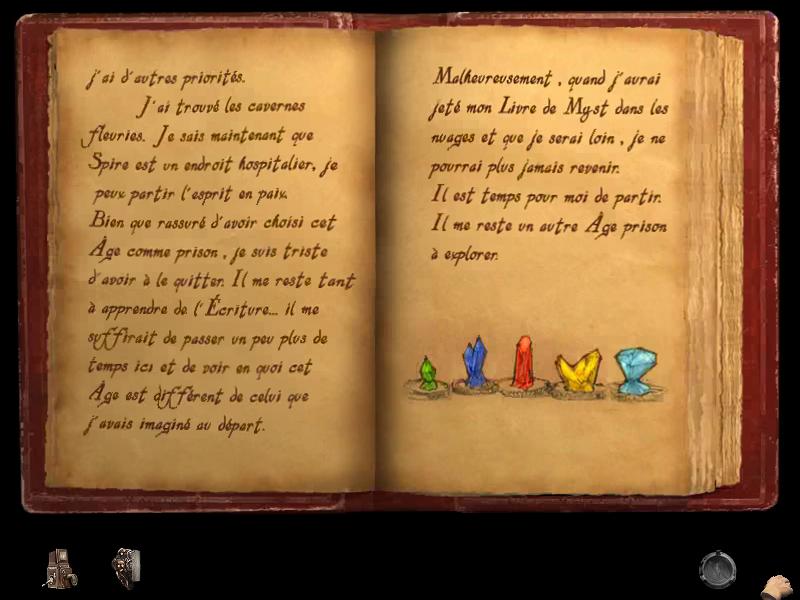 j'ai d'autres priorités.
J'ai trouvé les cavernes
fleuries. Je sais maintenant que
Spire est un endroit hospitalier, je
peux partir l'esprit en paix.
Bien que rassuré d'avoir choisi cet
Âge comme prison, je suis triste
d'avoir à le quitter. Il me reste tant
à apprendre de l'Écriture... il me
suffirait de passer un peu plus de
temps ici et de voir en quoi cet
Âge est différent de celui que
j'avais imaginé au départ.
Malheureusement, quand j'aurai
jeté mon Livre de Myst dans les
nuages et que je serai loin, je ne
pourrai plus jamais revenir.
Il est temps pour moi de partir.
Il me reste un autre Âge prison
à explorer.